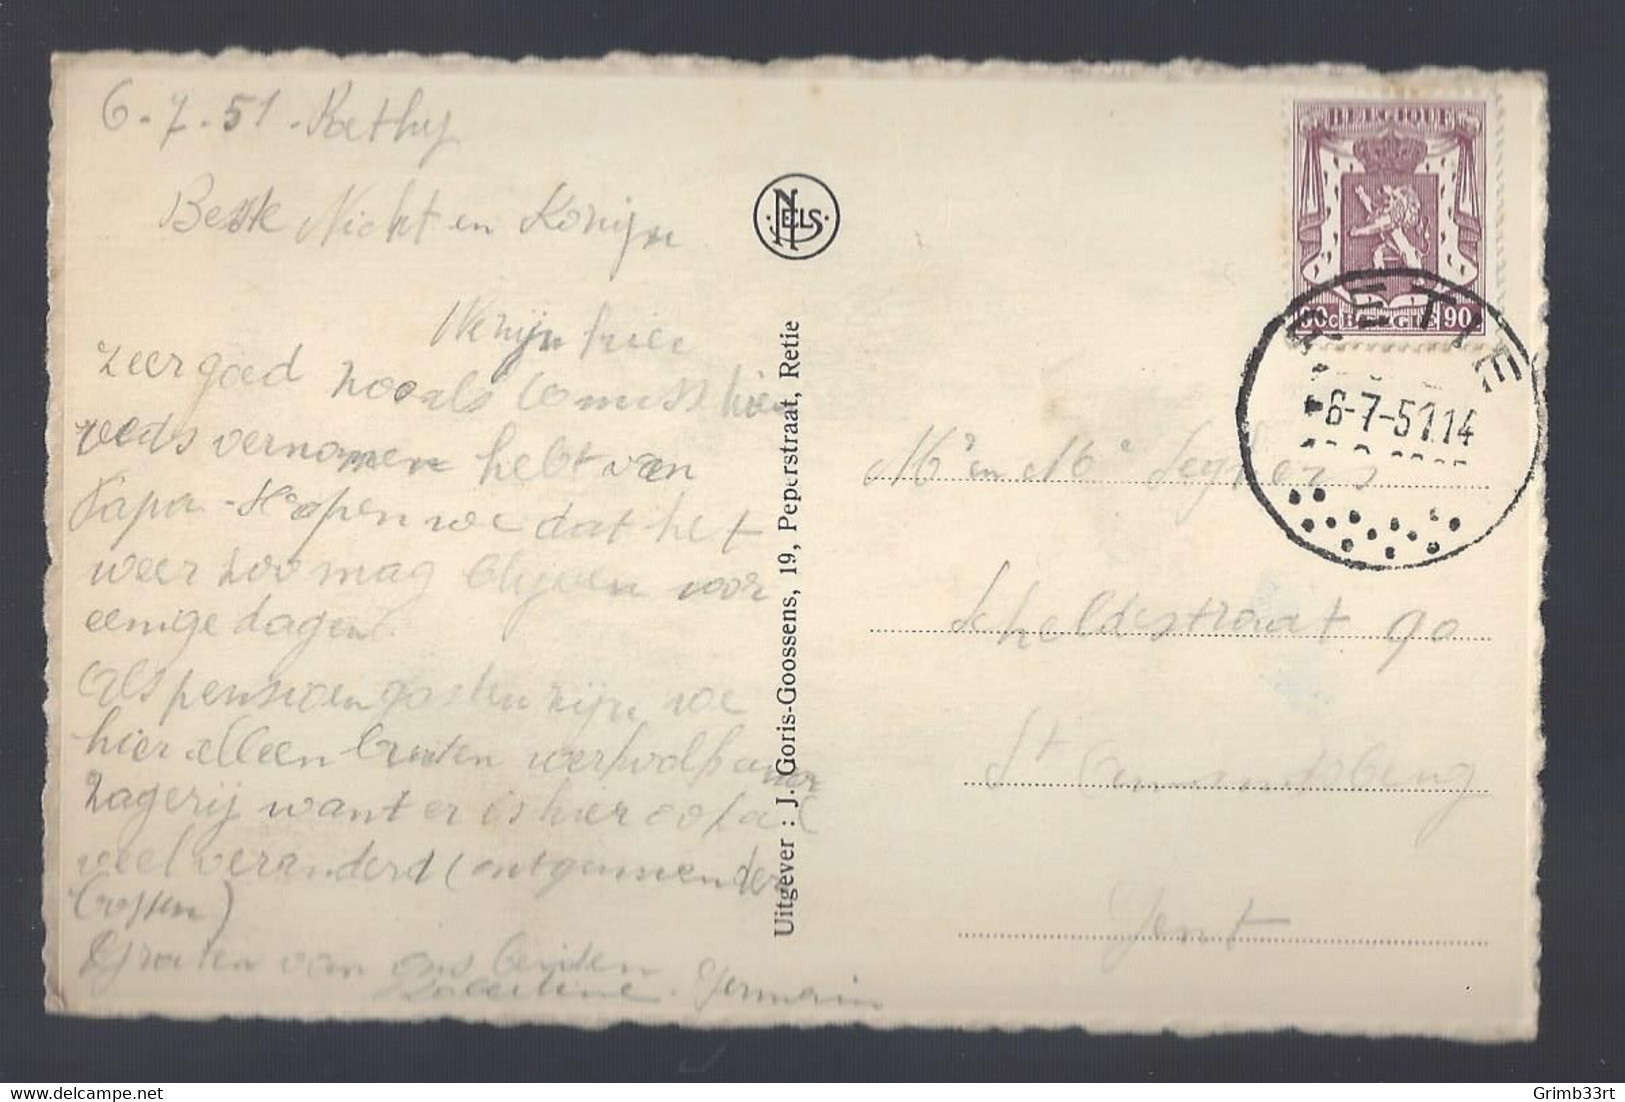 6-7-51. Rethy
Beste Nicht en Konijn
We zijn hier
zeer goed zooals U misschien
reeds vernomen hebt van
Papa - Hopen we dat het
weer zoo mag blijven voor
eenige dagen.
Als pensioengasten zijn we
hier alleen buiten
zagerij want er is hier ook al
veel veranderd (ontgonnen
bossen)
Groeten van ons beiden
Germain
NELS
Uitgever : J. Goris-Goossens, 19, Peperstraat, Retie
BELGIQUE
90c BELGIE 90c
RETIE
-6-7-51.14
Mr en Me Seghers
Scheldestraat 90
St Amandsberg
Gent
Grimb33rt